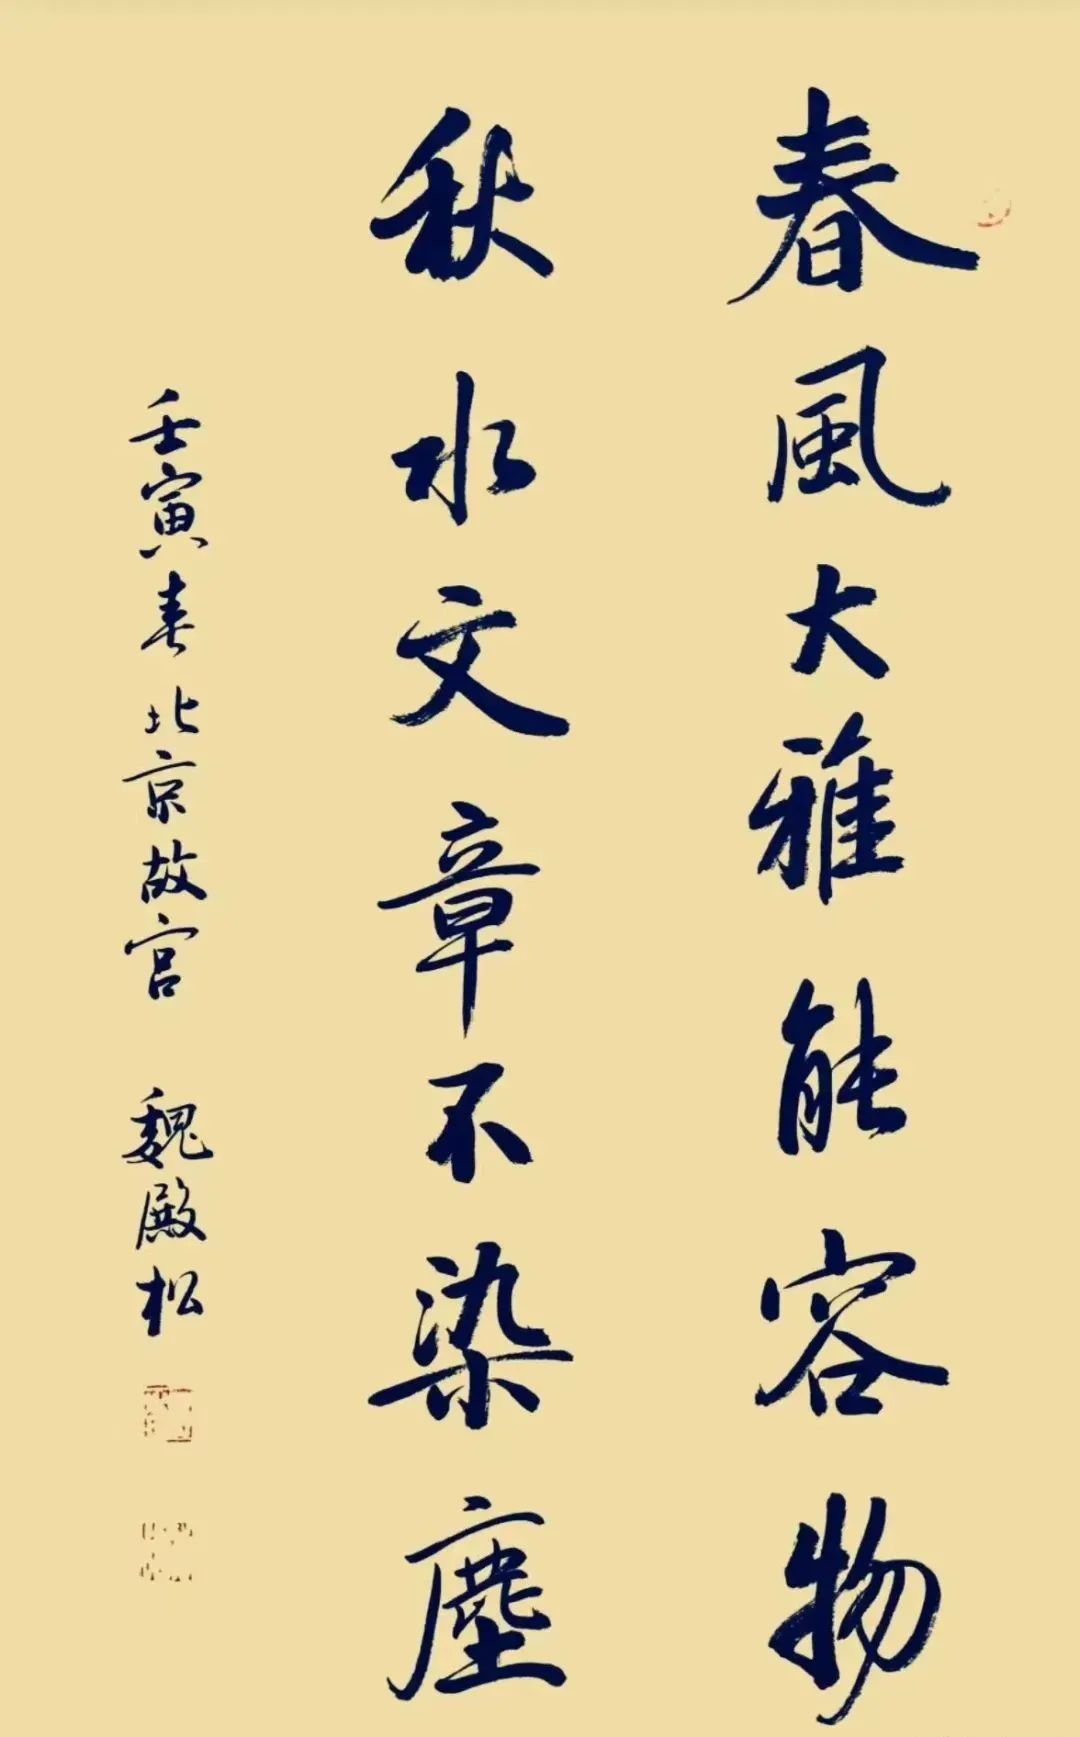 春風大雅能容物
秋水文章不染塵
壬寅春北京故宮 魏殿松